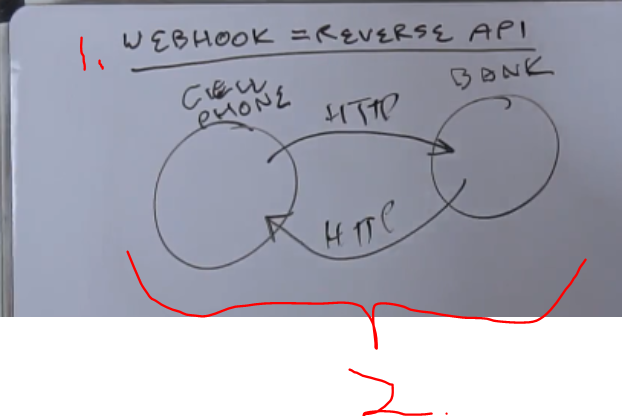 1. WEBHOOK = REVERSE API
BANK
CELL
PHONE
HTTP
HTTP
2.